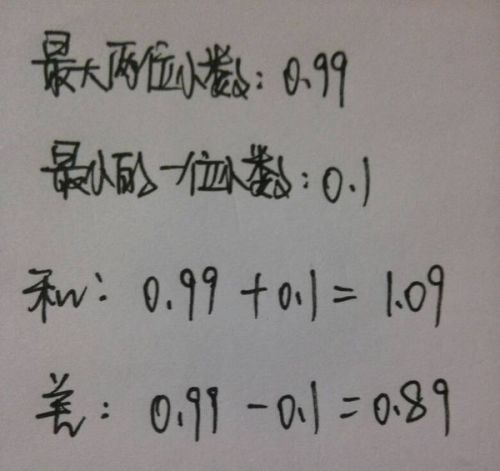 最大两位小数：0.99
最小的一位小数：0.1
和：0.99+0.1=1.09
差：0.99-0.1=0.89